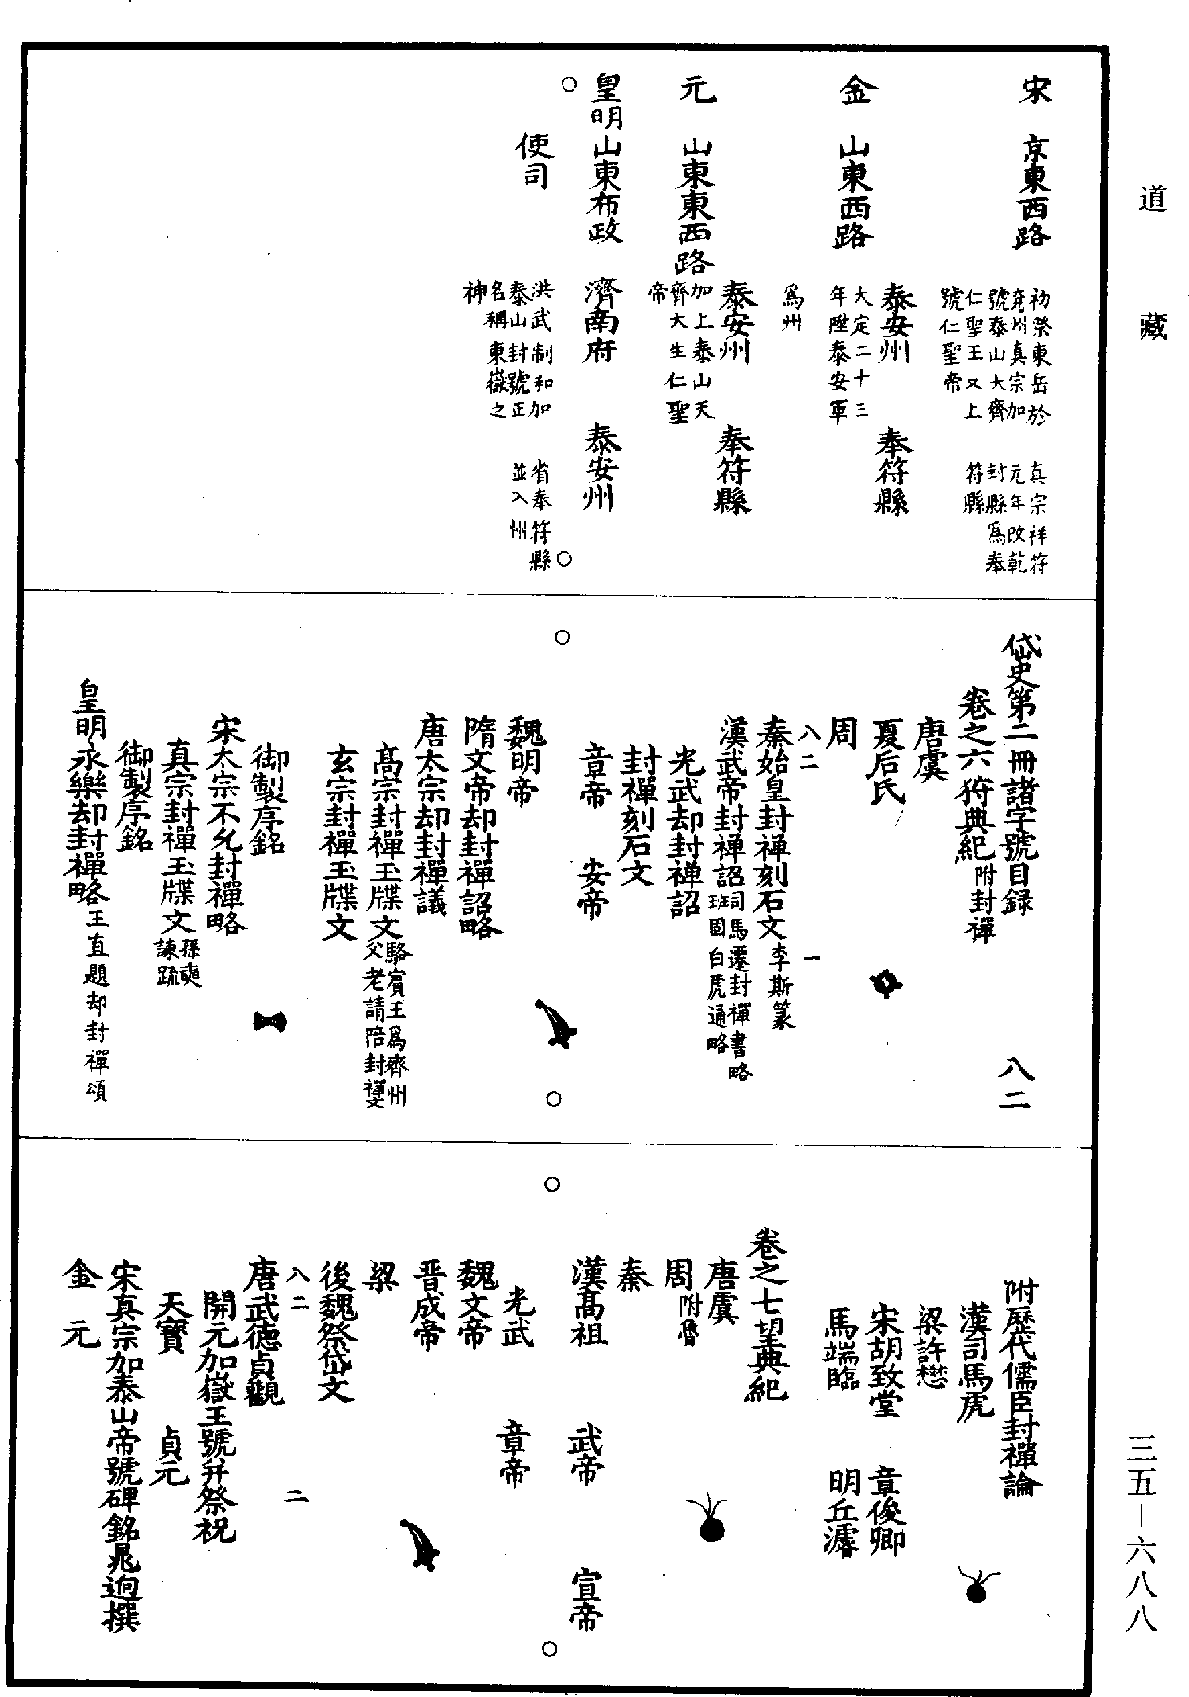 道藏
宋　京東西路
初祭東岳於
兗州真宗加
號泰山大齊
仁聖王又上
號仁聖帝
真宗祥符
元年改乾
封縣爲奉
符縣
金　山東西路　泰安州　奉符縣
大定二十三
年陞泰安軍
爲州
元　山東東西路　泰安州　奉符縣
加上泰山天
齊大生仁聖
帝
皇明山東布政　濟南府　泰安州
使司
洪武制和加
泰山封號正
名稱東嶽之
神
省奉符縣
並入州
岱史第二冊諸字號目録　八二
卷之六狩典紀附封禪
唐虞
夏后氏
周
八二　一
秦始皇封禅刻石文李斯篆
漢武帝封禅詔司馬遷封禪書略
班固白虎通略
光武却封禅詔
封禪刻石文
章帝　安帝
魏明帝
隋文帝却封禪詔略
唐太宗却封禪議
高宗封禪玉牒文駱賓王爲齊州
父老請陪封禪文
玄宗封禪玉牒文
御製序銘
宋太宗不允封禪略
真宗封禪玉牒文孫奭
諫疏
御製序銘
皇明永樂却封禪略王直題却封禪頌
附歷代儒臣封禪論
漢司馬虎
梁許懋
宋胡致堂　章俊卿
馬端臨　明丘濬
卷之七望典紀
唐虞
周附魯
秦
漢高祖　武帝　宣帝
光武　章帝
魏文帝
晉成帝
梁
後魏祭岱文
八二　二
唐武德貞觀
開元加嶽王號并祭祝
天寶　貞元
宋真宗加泰山帝號碑銘晁迥撰
金　元
三五－六八八